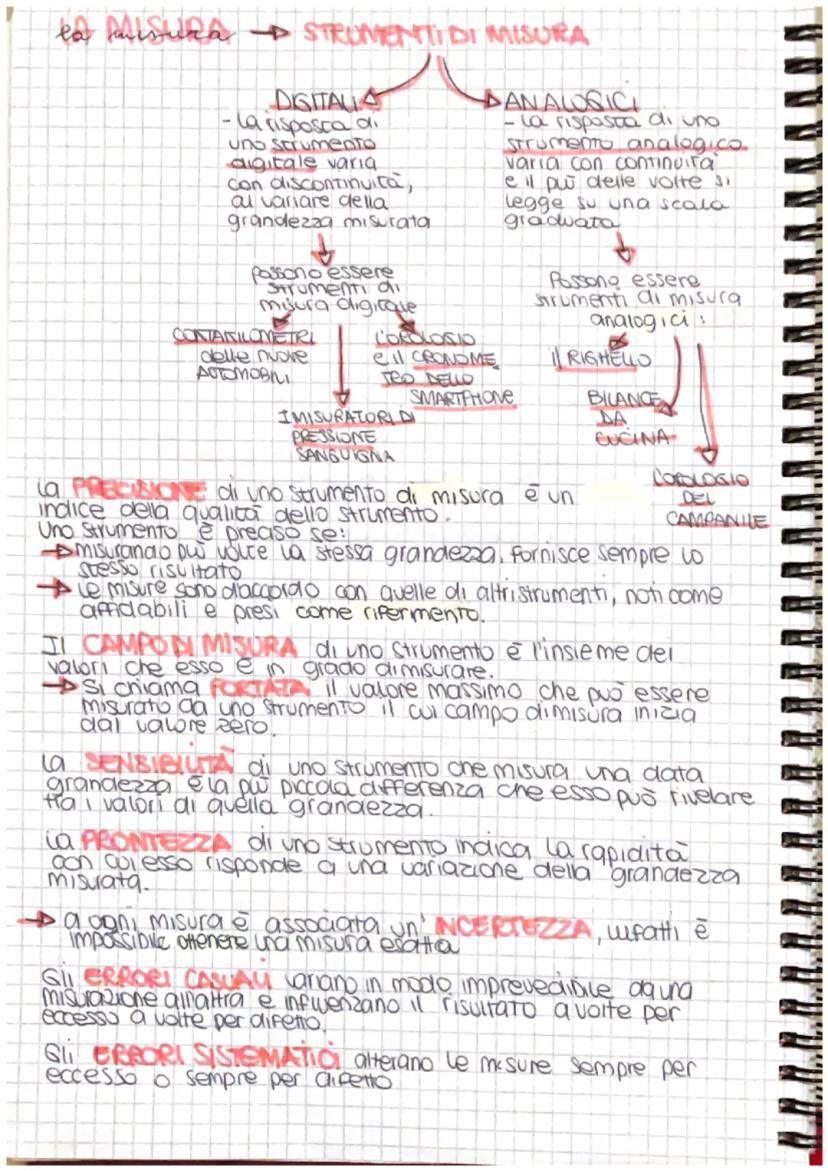 la misura → STRUMENTI DI MISURA
DIGITALI
- La risposta di
uno strumento
digitale varia
con discontinuità,
al variare della
grandezza misurata
ANALOGICI
- La risposta di uno
strumento analogico
varia con continuità
e il più delle volte si
legge su una scala
graduata
possono essere
strumenti di
misura digitale
CONTAKILOMETRI
delle nuove
AUTOMOBILI
I MISURATORI DI
PRESSIONE
SANGUIGNA
L'OROLOGIO
e il CRONOME
TRO DELLO
SMARTPHONE
Possono essere
strumenti di misura
analogici:
il RIGHELLO
BILANCE
DA
CUCINA
L'OROLOGIO
DEL
CAMPANILE
La PRECISIONE di uno strumento di misura è un
indice della qualità dello strumento.
Uno strumento è preciso se:
→ misurando più volte la stessa grandezza, fornisce sempre lo
stesso risultato
→ Le misure sono d'accordo con quelle di altri strumenti, noti come
affidabili e presi come rifermento.
Il CAMPO DI MISURA di uno strumento è l'insieme dei
valori che esso è in grado di misurare.
→ Si chiama PORTATA il valore massimo che può essere
misurato da uno strumento il cui campo di misura inizia
dal valore zero.
La SENSIBILITÀ di uno strumento che misura una data
grandezza è la più piccola differenza che esso può rivelare
tra i valori di quella grandezza.
La PRONTEZZA di uno strumento indica la rapidità
con cui esso risponde a una variazione della grandezza
misurata.
→ a ogni misura è associata un'INCERTEZZA, infatti è
impossibile ottenere una misura esatta
Gli ERRORI CASUALI variano in modo imprevedibile da una
misurazione all'altra e influenzano il risultato a volte per
eccesso a volte per difetto.
Gli ERRORI SISTEMATICI alterano le misure sempre per
eccesso o sempre per difetto